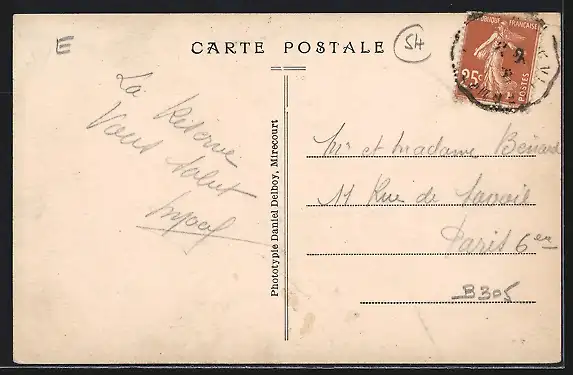 E
CARTE POSTALE
54
RÉPUBLIQUE FRANÇAISE
25c
POSTES
La Réserve
Vous salut
Phototypie Daniel Delboy, Mirecourt
Mr et Madame Benard
11 Rue de Savoie
Paris 6en
B305